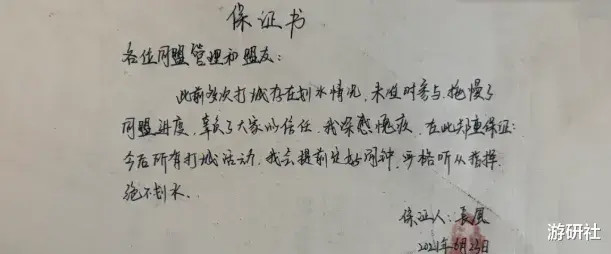 保证书
各位同盟管理和盟友：
此前多次打城存在划水情况，未及时参与，拖慢了
同盟进度，辜负了大家的信任，我深感愧疚，在此郑重保证：
今后所有打城活动，我会提前定好闹钟，严格听从指挥，
绝不划水。
保证人：长风
2021年6月23日
游研社